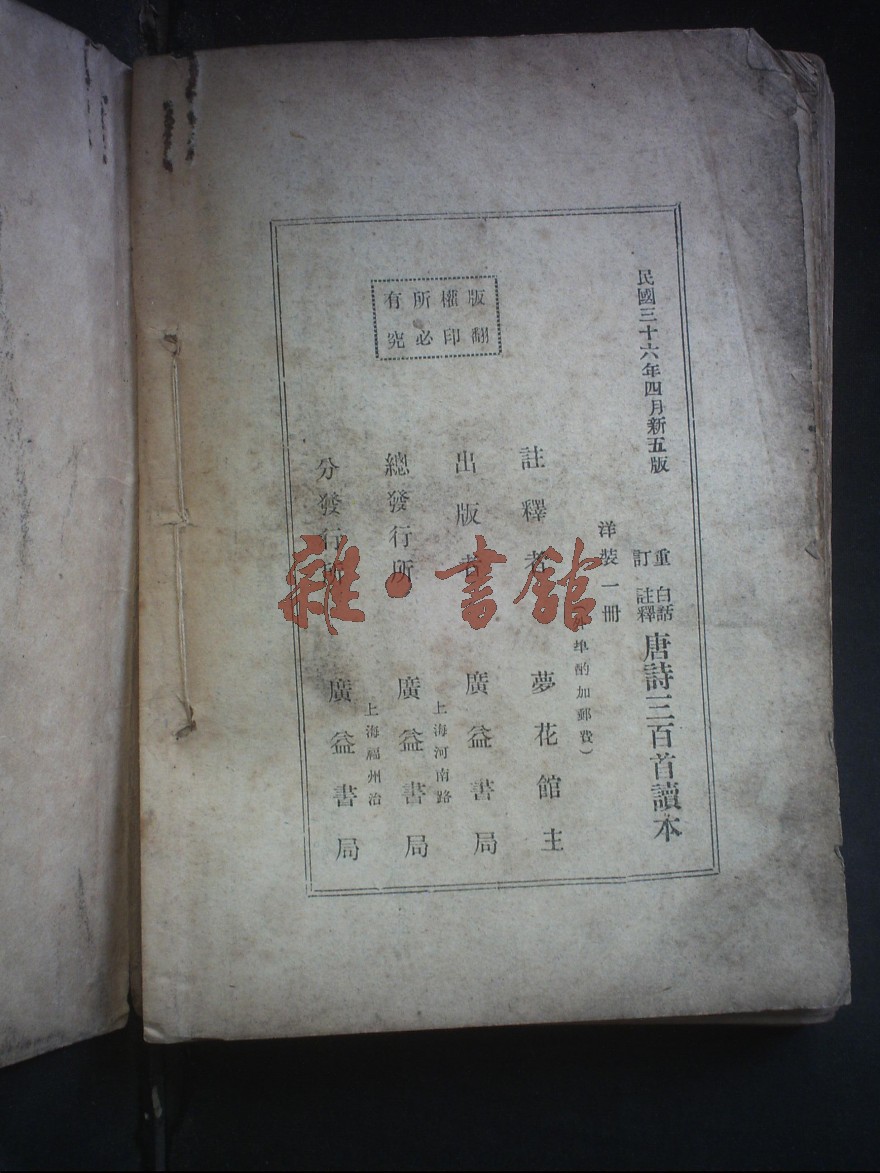 民國三十六年四月新五版
重訂 白話註釋 唐詩三百首讀本
洋裝一冊
埠酌加郵費）
註釋者 夢花館主
出版者 廣益書局
上海河南路
總發行所 廣益書局
上海福州治
分發行所 廣益書局
版權所有
翻印必究
雜書館